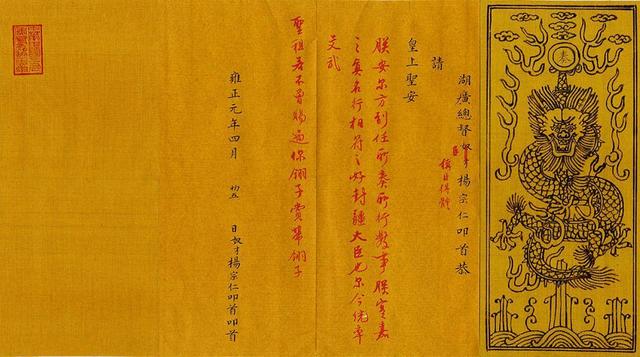 奏
湖廣總督奴才楊宗仁叩首恭
臣
稱臣得體
請
皇上聖安
朕安尔方到任所奏所行数事朕實嘉
之真名行相符之好封疆大臣也尔今統率
文武
聖祖若不曾賜過你翎子賞帶翎子
雍正元年四月 初五 日奴才楊宗仁叩首叩首